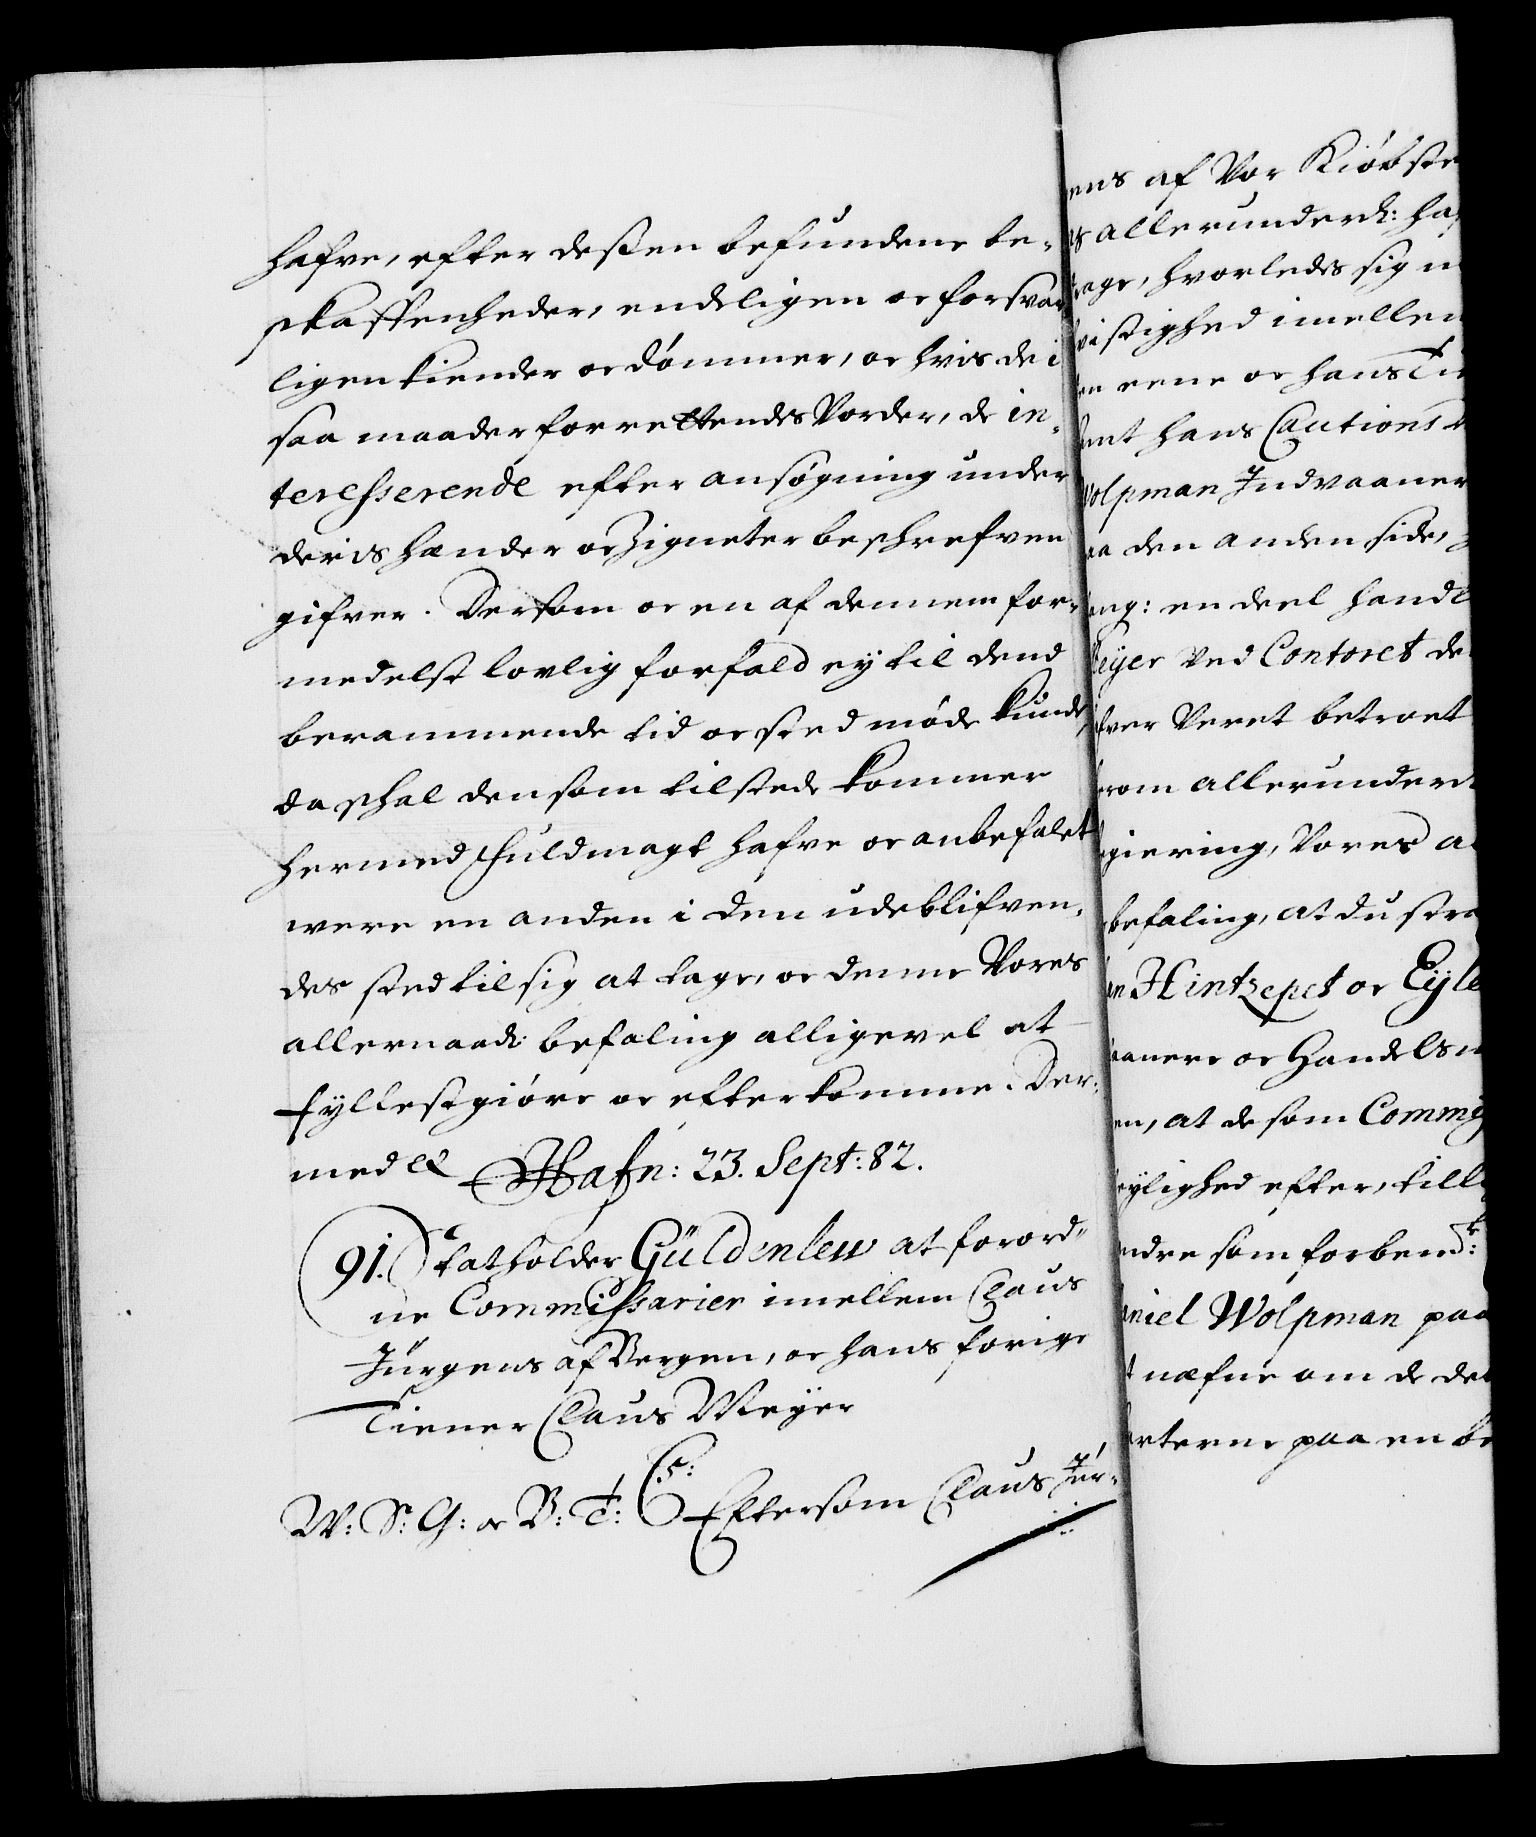 hafve, efter deßen befundene be-
skaffenheder, endeligen oc forsvar-
ligen kiender oc dömmer, oc hvis de i
saa maader forrettendes Vorder, de in-
teresserende efter ansøgning under
deris hænder oc Zigneter beschrefven
gifver. Dersom oc en af dennem for-
medelst lovlig forfald ey til dend
berammende tid oc sted møde kunde,
da schal den som tilstede kommer
hermed fuldmagt hafve oc anbefalet
were en anden i den udeblifven-
des sted til sig at tage, oc denne Vores
allernaad: befaling alligevel at
fyllestgiöre oc efterkomme. Der-
med &c Hafn: 23. Sept: 82.
91. Statholder Güldenlew at forord-
ne Commissarier imellem Claus
Jürgens af Bergen, oc hans forige
Tiener Claus Meÿer
W: S: G: oc B: T: C:5: Eftersom Claus Jür-
ens af Vor Kiöbste
allerunderd: ha
age, hvorledes sig
istighed imellem
en eene oc hans Ti
samt hans Cautions
Wolpman Indvaaner
aa den anden side,
eng: en deel handl
eÿer ved Contoret de
fver Veret betroet
erom allerunderd
giering, Vores a
befaling, at du stra
an Hintzepet oc Eyle
aanere oc Handels
en, at de som Commiss
eylighed efter, till
ndre som forbend:te
aniel Wolpman paa
t næfne om de det
arterne paa en be